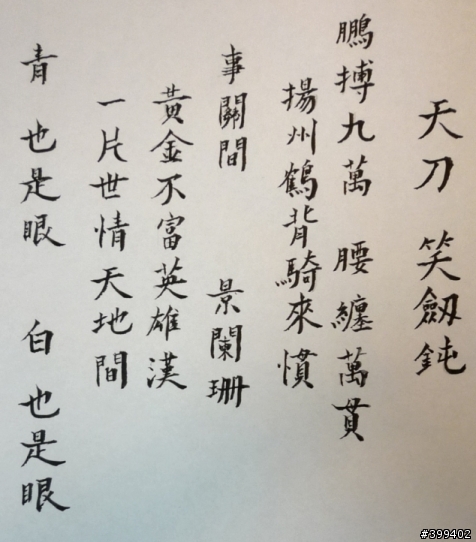 天刀 笑劔鈍
鵬摶九萬 腰纏萬貫
揚州鶴背騎來慣
事關間 景闌珊
黃金不富英雄漢
一片世情天地間
青 也是眼 白 也是眼
#399402